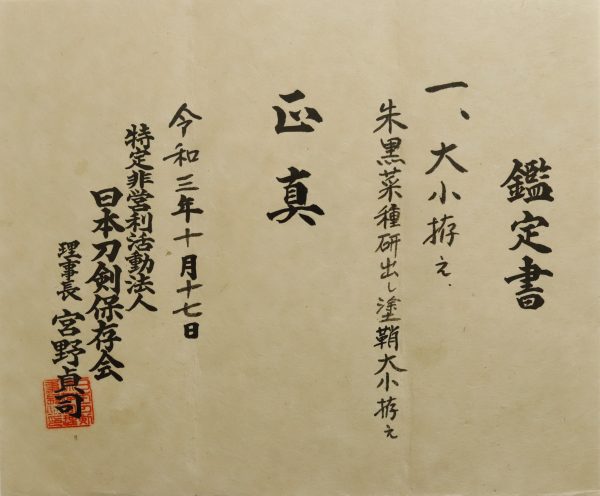 鑑定書
一、大小拵え
朱黒菜種研出し塗鞘大小拵え
正真
令和三年十月十七日
特定非営利活動法人
日本刀剣保存会
理事長 宮野貞司